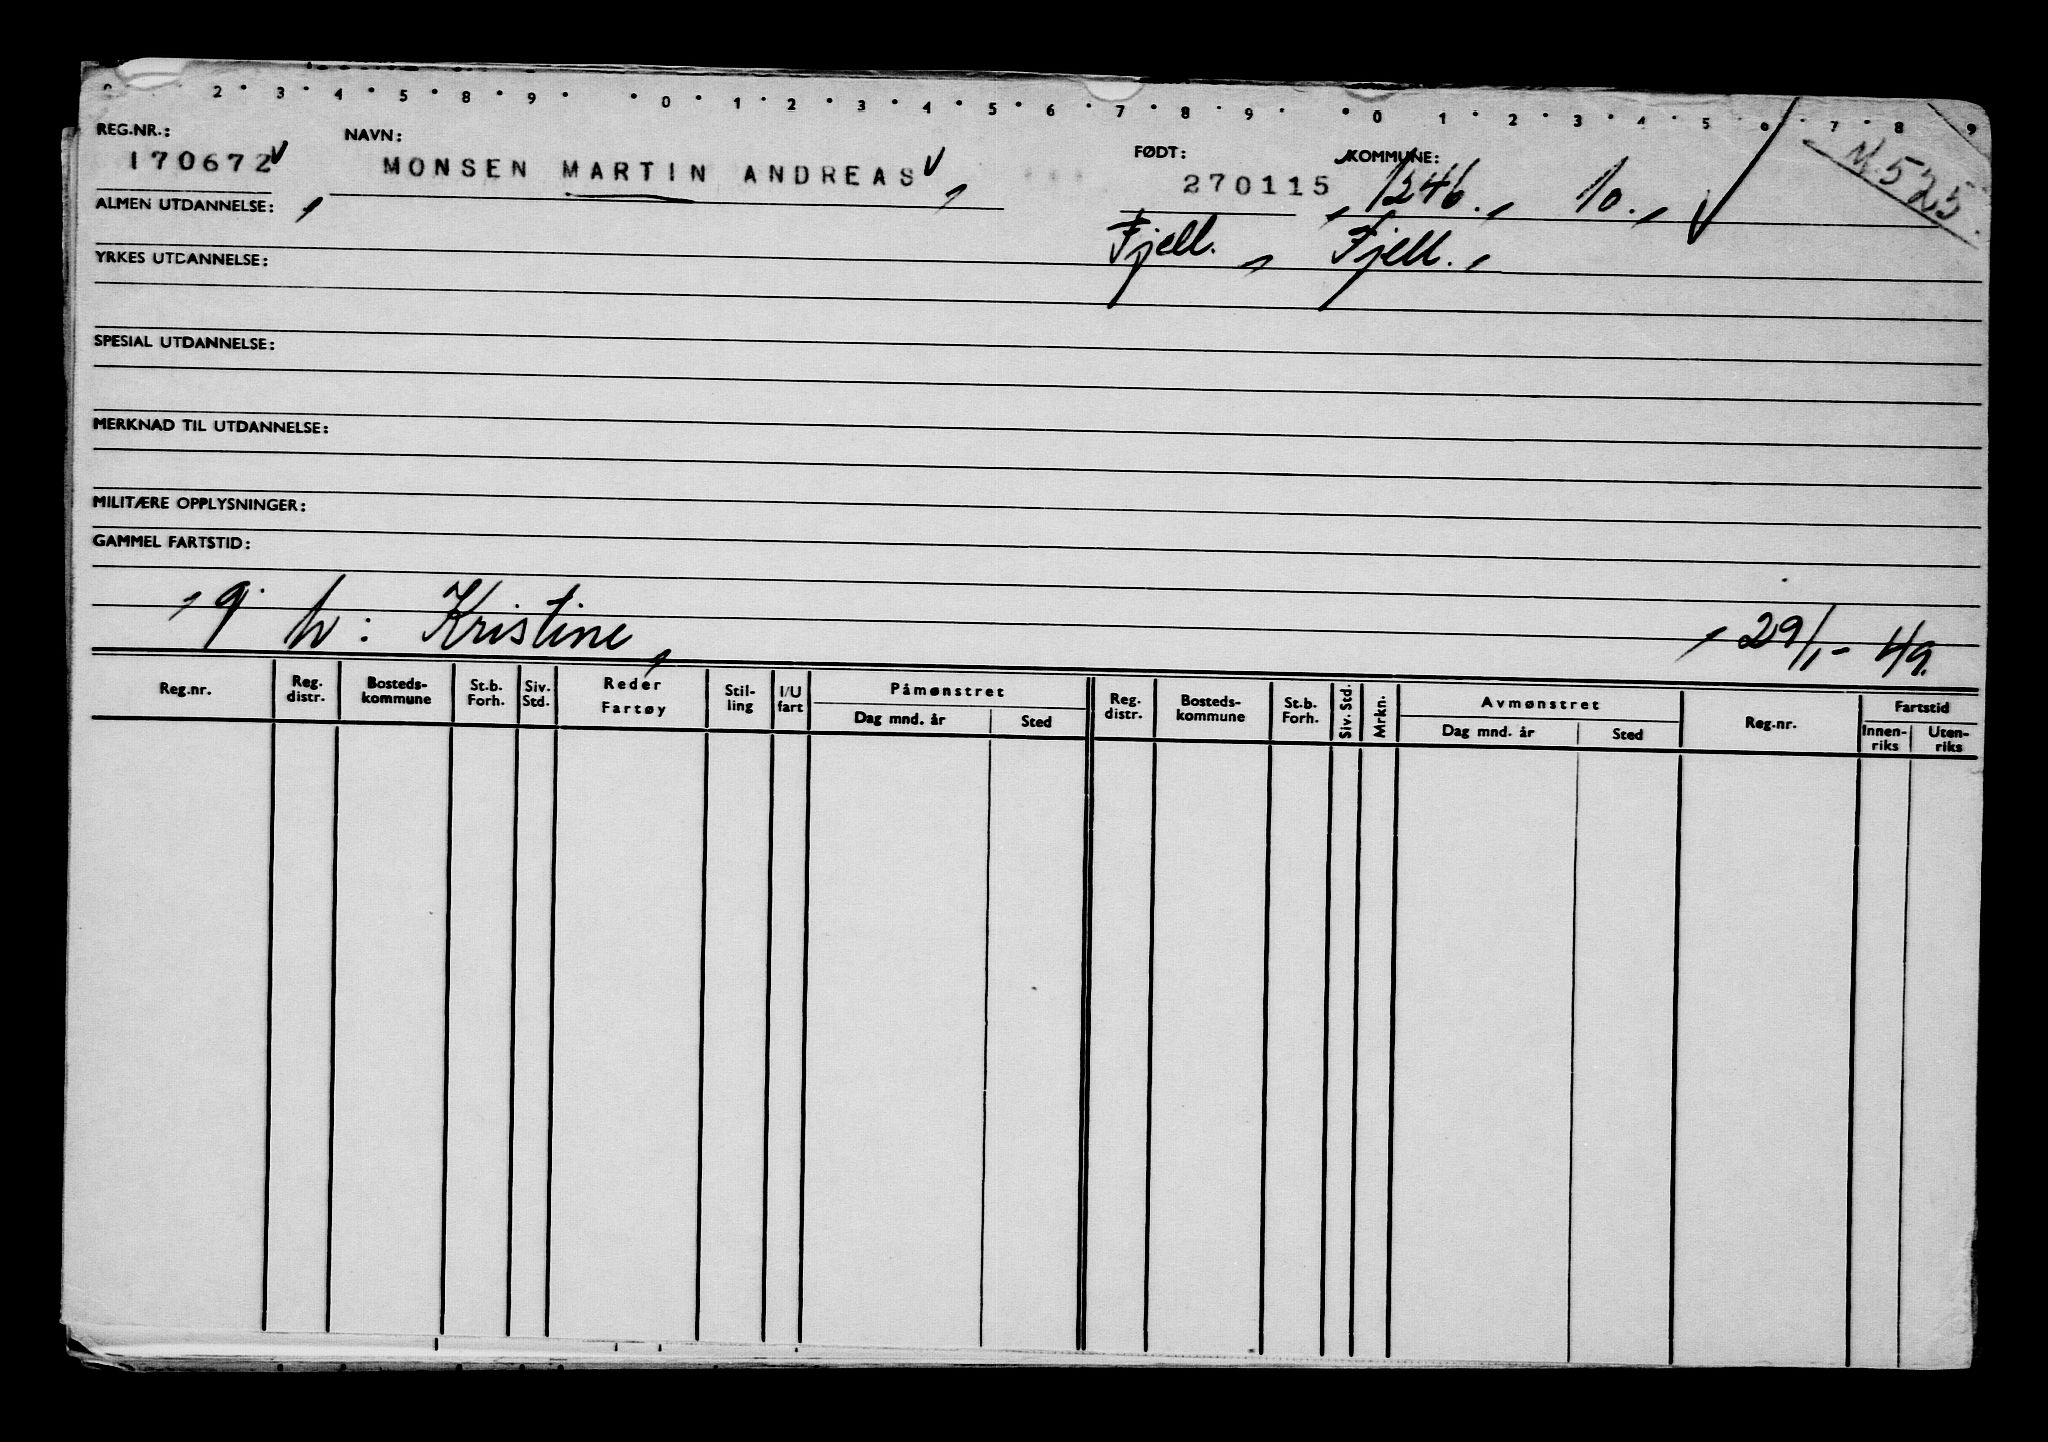 2 3 4 5 8 9 0 1 2 3 4 5 6 7 8 9 0 1 2 3 4 5 6 7 8 9
REG.NR.: NAVN: FØDT: KOMMUNE: M. 525
170672 MONSEN MARTIN ANDREAS 270115 1246. 10.
ALMEN UTDANNELSE: Fjell. Fjell.
YRKES UTDANNELSE:
SPESIAL UTDANNELSE:
MERKNAD TIL UTDANNELSE:
MILITÆRE OPPLYSNINGER:
GAMMEL FARTSTID:
g. h: Kristine, 29/1-49.
Reg.nr. Reg. distr. Bosteds-kommune St.b. Forh. Siv. Std. Reder Fartøy Stil-ling I/U fart Påmønstret Dag mnd. år Sted Reg. distr. Bosteds-kommune St.b. Forh. Siv. Std. Mrkn. Avmønstret Dag mnd. år Sted Reg.nr. Fartstid Innen-riks Uten-riks